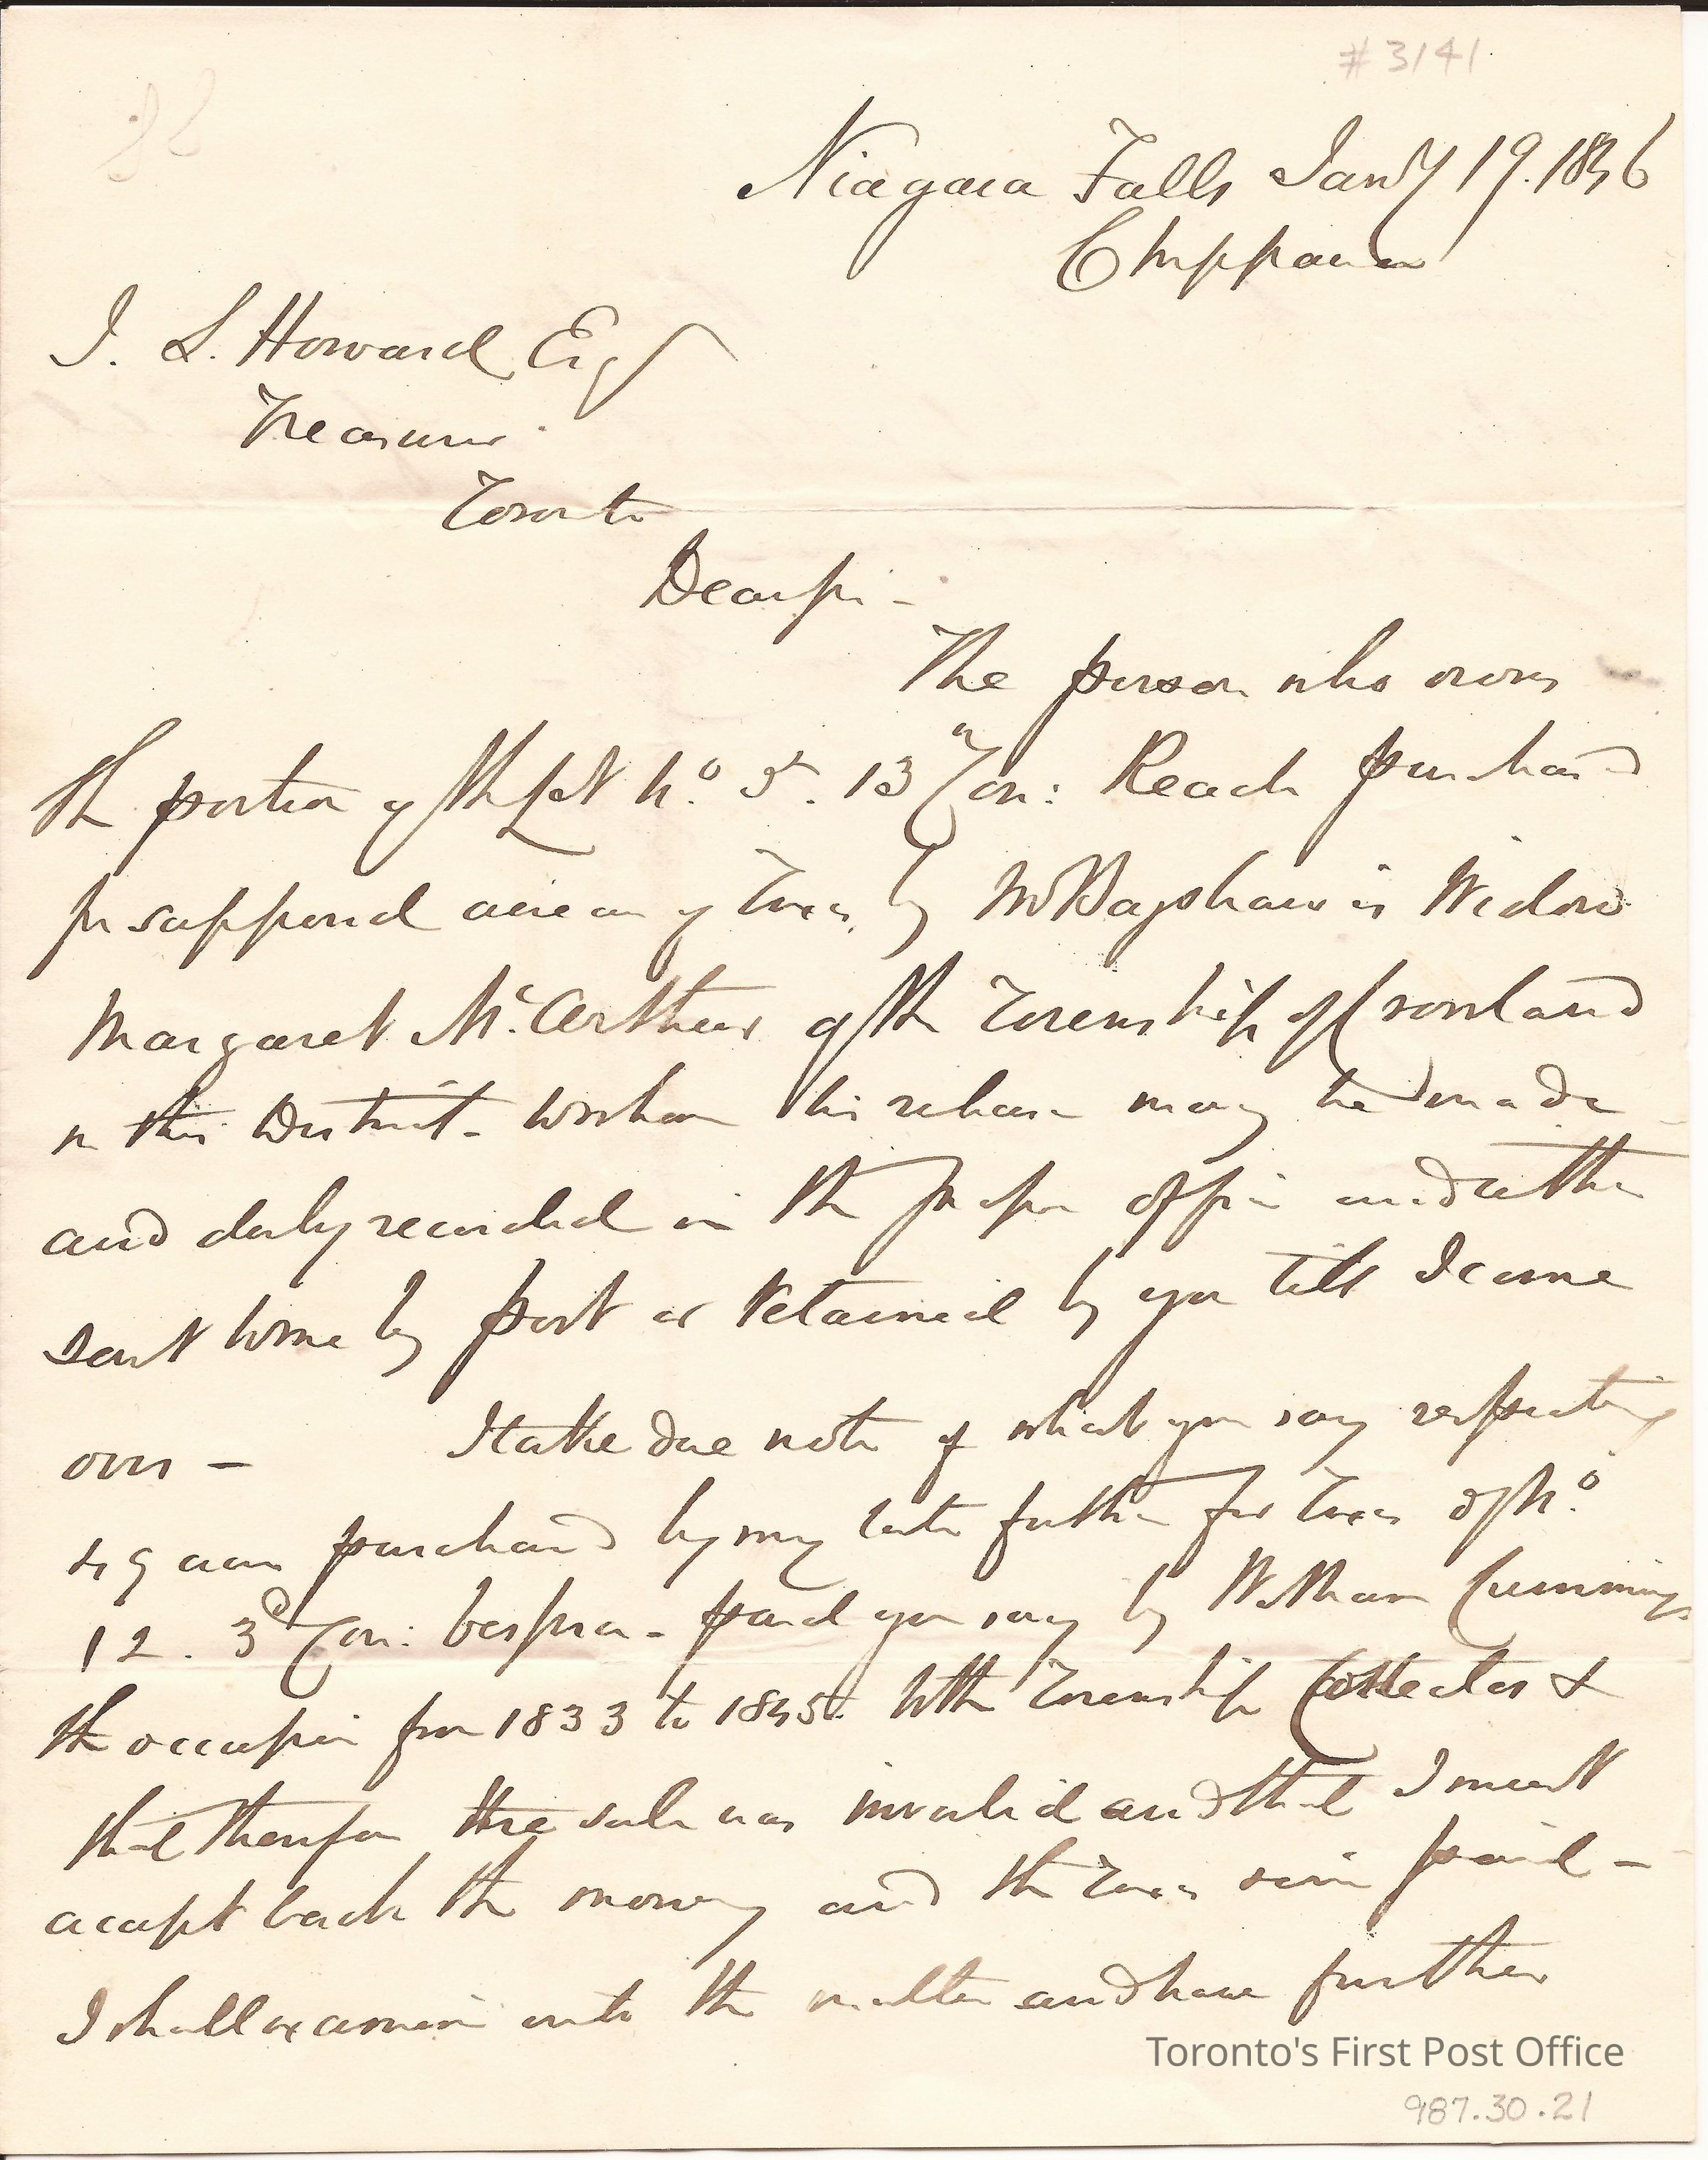 #3141
Niagara Falls Jany 19. 1846
Chippawa
J. S. Howard Esq
Treasurer
Toronto
Dear Sir -
The person who owns
the portion of the Lot No 5. 13th Con: Reach purchased
for supposed arrears of Taxes, by Mr Bagshaw is Widow
Margaret McArthur of the Township of Crowland
in this District - to whom his release may be made
and duly recorded in the proper office and either
sent home by post or retained by you till I come
over - I take due note of what you say respecting
49 acres purchased by my late father for Taxes of No
12. 3d Con: Vespra - paid you say by William Cummings
the occupier from 1833 to 1845. to the Township Collector &
that therefore the sale was invalid and that I must
accept back the money and the Taxes since paid -
I shall examine into the matter and have further
Toronto's First Post Office
987.30.21